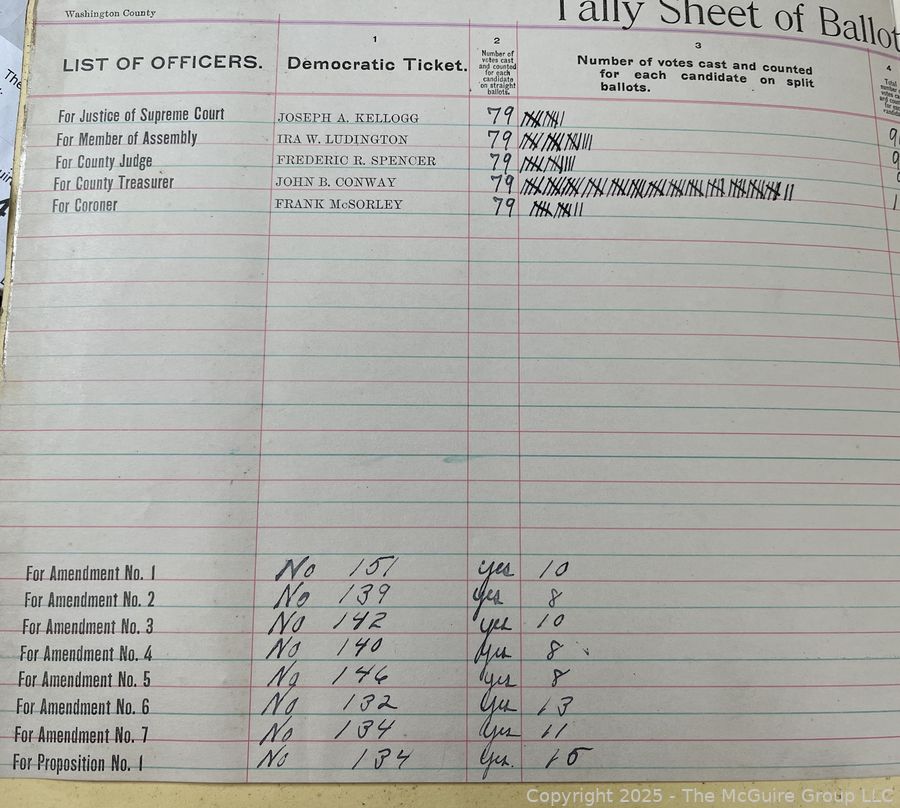 Washington County
Tally Sheet of Ballot
LIST OF OFFICERS.
1
Democratic Ticket.
2
Number of votes cast and counted for each candidate on straight ballots.
3
Number of votes cast and counted for each candidate on split ballots.
4
For Justice of Supreme Court JOSEPH A. KELLOGG 79
For Member of Assembly IRA W. LUDINGTON 79
For County Judge FREDERIC R. SPENCER 79
For County Treasurer JOHN B. CONWAY 79
For Coroner FRANK McSORLEY 79
For Amendment No. 1 No 151 yes 10
For Amendment No. 2 No 139 yes 8
For Amendment No. 3 No 142 yes 10
For Amendment No. 4 No 140 yes 8
For Amendment No. 5 No 146 yes 8
For Amendment No. 6 No 132 yes 13
For Amendment No. 7 No 134 yes 11
For Proposition No. 1 No 134 yes. 15
Copyright 2025 - The McGuire Group LLC